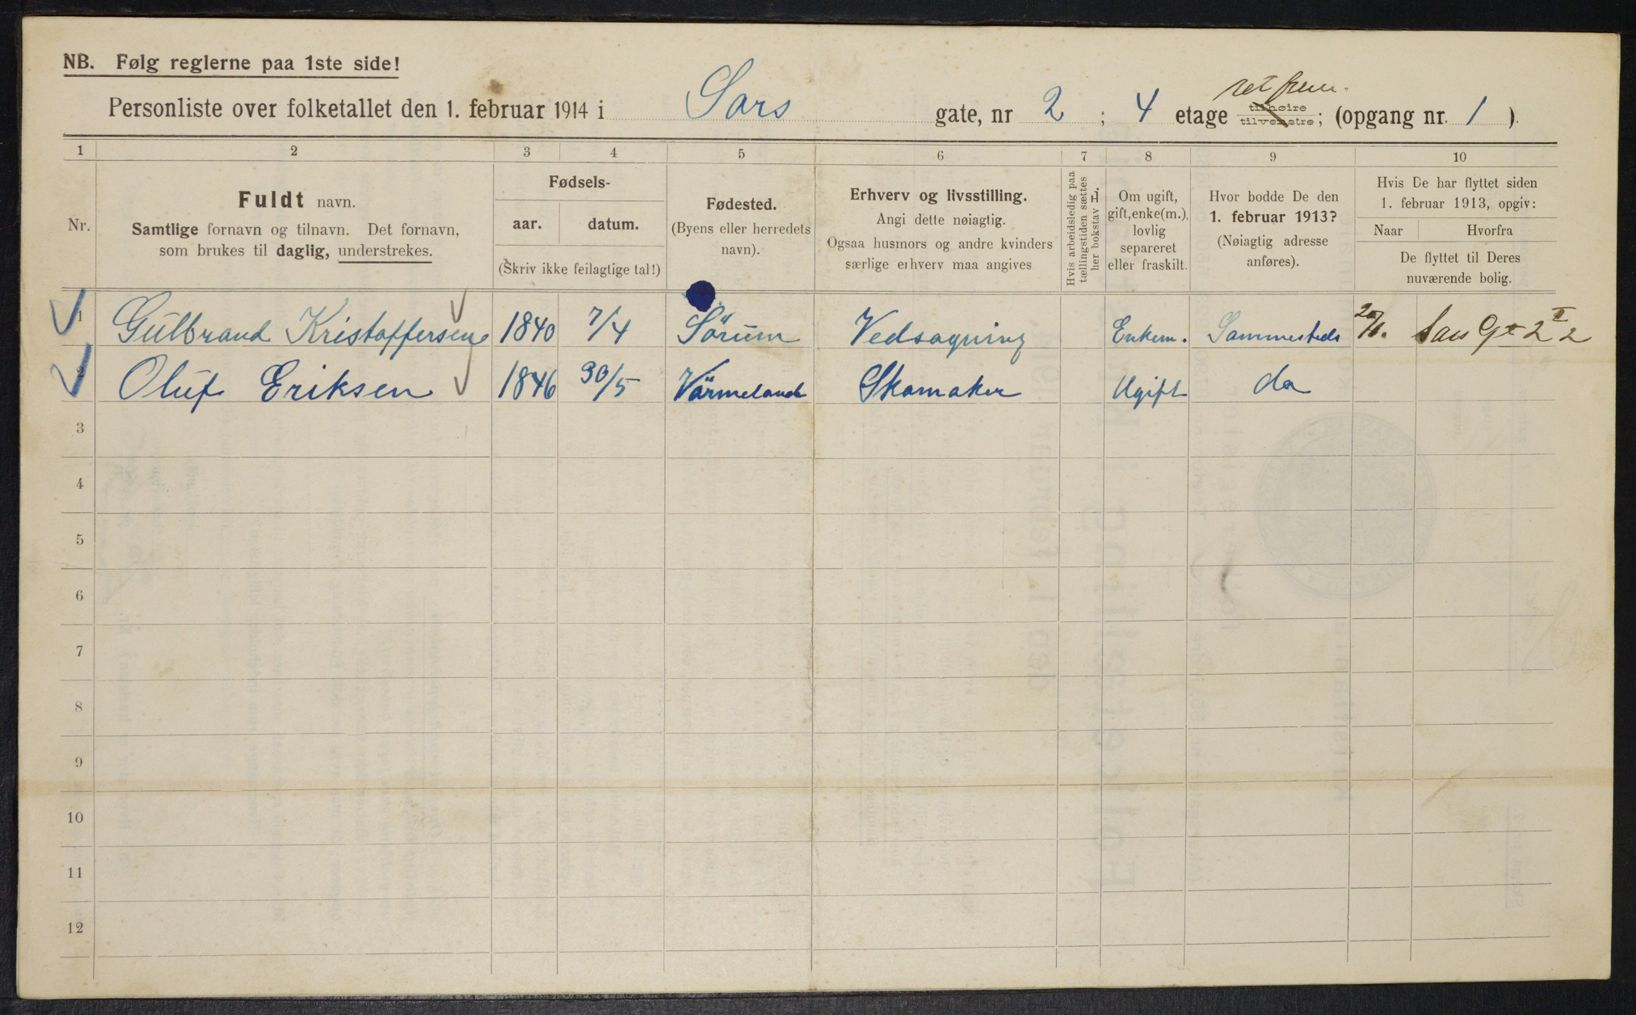 NB. Følg reglerne paa 1ste side!
ret frem.
Personliste over folketallet den 1. februar 1914 i Sars gate, nr 2 ; 4 etage tilhøire tilvenstre; (opgang nr. 1 ).
1 2 3 4 5 6 7 8 9 10
Nr.
Fuldt navn.
Samtlige fornavn og tilnavn. Det fornavn,
som brukes til daglig, understrekes.
Fødsels-
aar. datum.
(Skriv ikke feilagtige tal!)
Fødested.
(Byens eller herredets
navn).
Erhverv og livsstilling.
Angi dette nøiagtig.
Ogsaa husmors og andre kvinders
særlige erhverv maa angives
Hvis arbeidsledig paa
tællingstiden sættes
her bokstav L.
Om ugift,
gift, enke(m.),
lovlig
separeret
eller fraskilt.
Hvor bodde De den
1. februar 1913?
(Nøiagtig adresse
anføres).
Hvis De har flyttet siden
1. februar 1913, opgiv:
Naar Hvorfra
De flyttet til Deres
nuværende bolig.
1 Gulbrand Kristoffersen 1840 7/4 Sörum Vedsagning Enkem. Sammesteds Sars Gt 2 II 2
2 Oluf Eriksen 1846 30/5 Värmeland Skomaker Ugift do
3
4
5
6
7
8
9
10
11
12